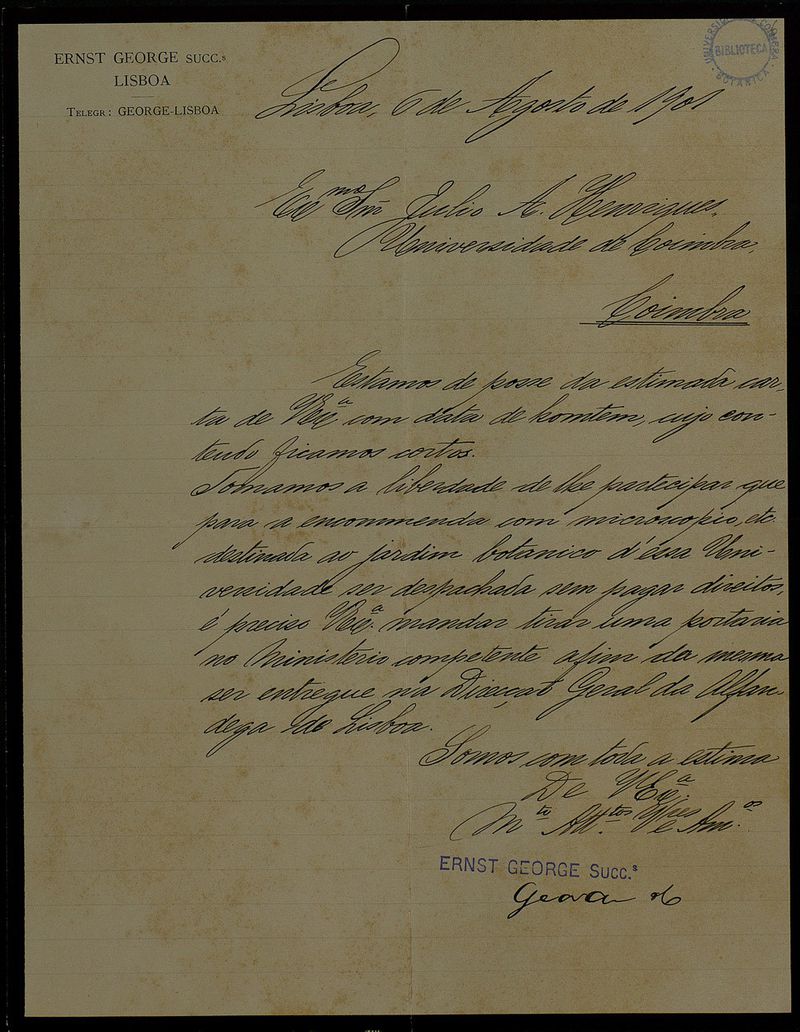 ERNST GEORGE SUCC.s
LISBOA
TELEGR: GEORGE-LISBOA
UNIVERSIDADE DE COIMBRA
BIBLIOTECA
BOTANICA
Lisboa, 6 de Agosto de 1901
Exmo Snr Julio A. Henriques,
Universidade de Coimbra,
Coimbra
Estamos de posse da estimada car-
ta de VExa com data de homtem, cujo con-
teudo ficamos certos.
Tomamos a liberdade de lhe partecipar que
para a encommenda com microscopio, etc.
destinada ao jardim botanico d'essa Uni-
versidade ser despachada sem pagar direitos,
é preciso VExa. mandar tirar uma portaria
no Ministerio competente afim da mesma
ser entregue na Direcçaõ Geral da Alfan-
dega de Lisboa.
Somos com toda a estima
De VExa.
Mto Atttos Vres e Amos.
ERNST GEORGE SUCC.s